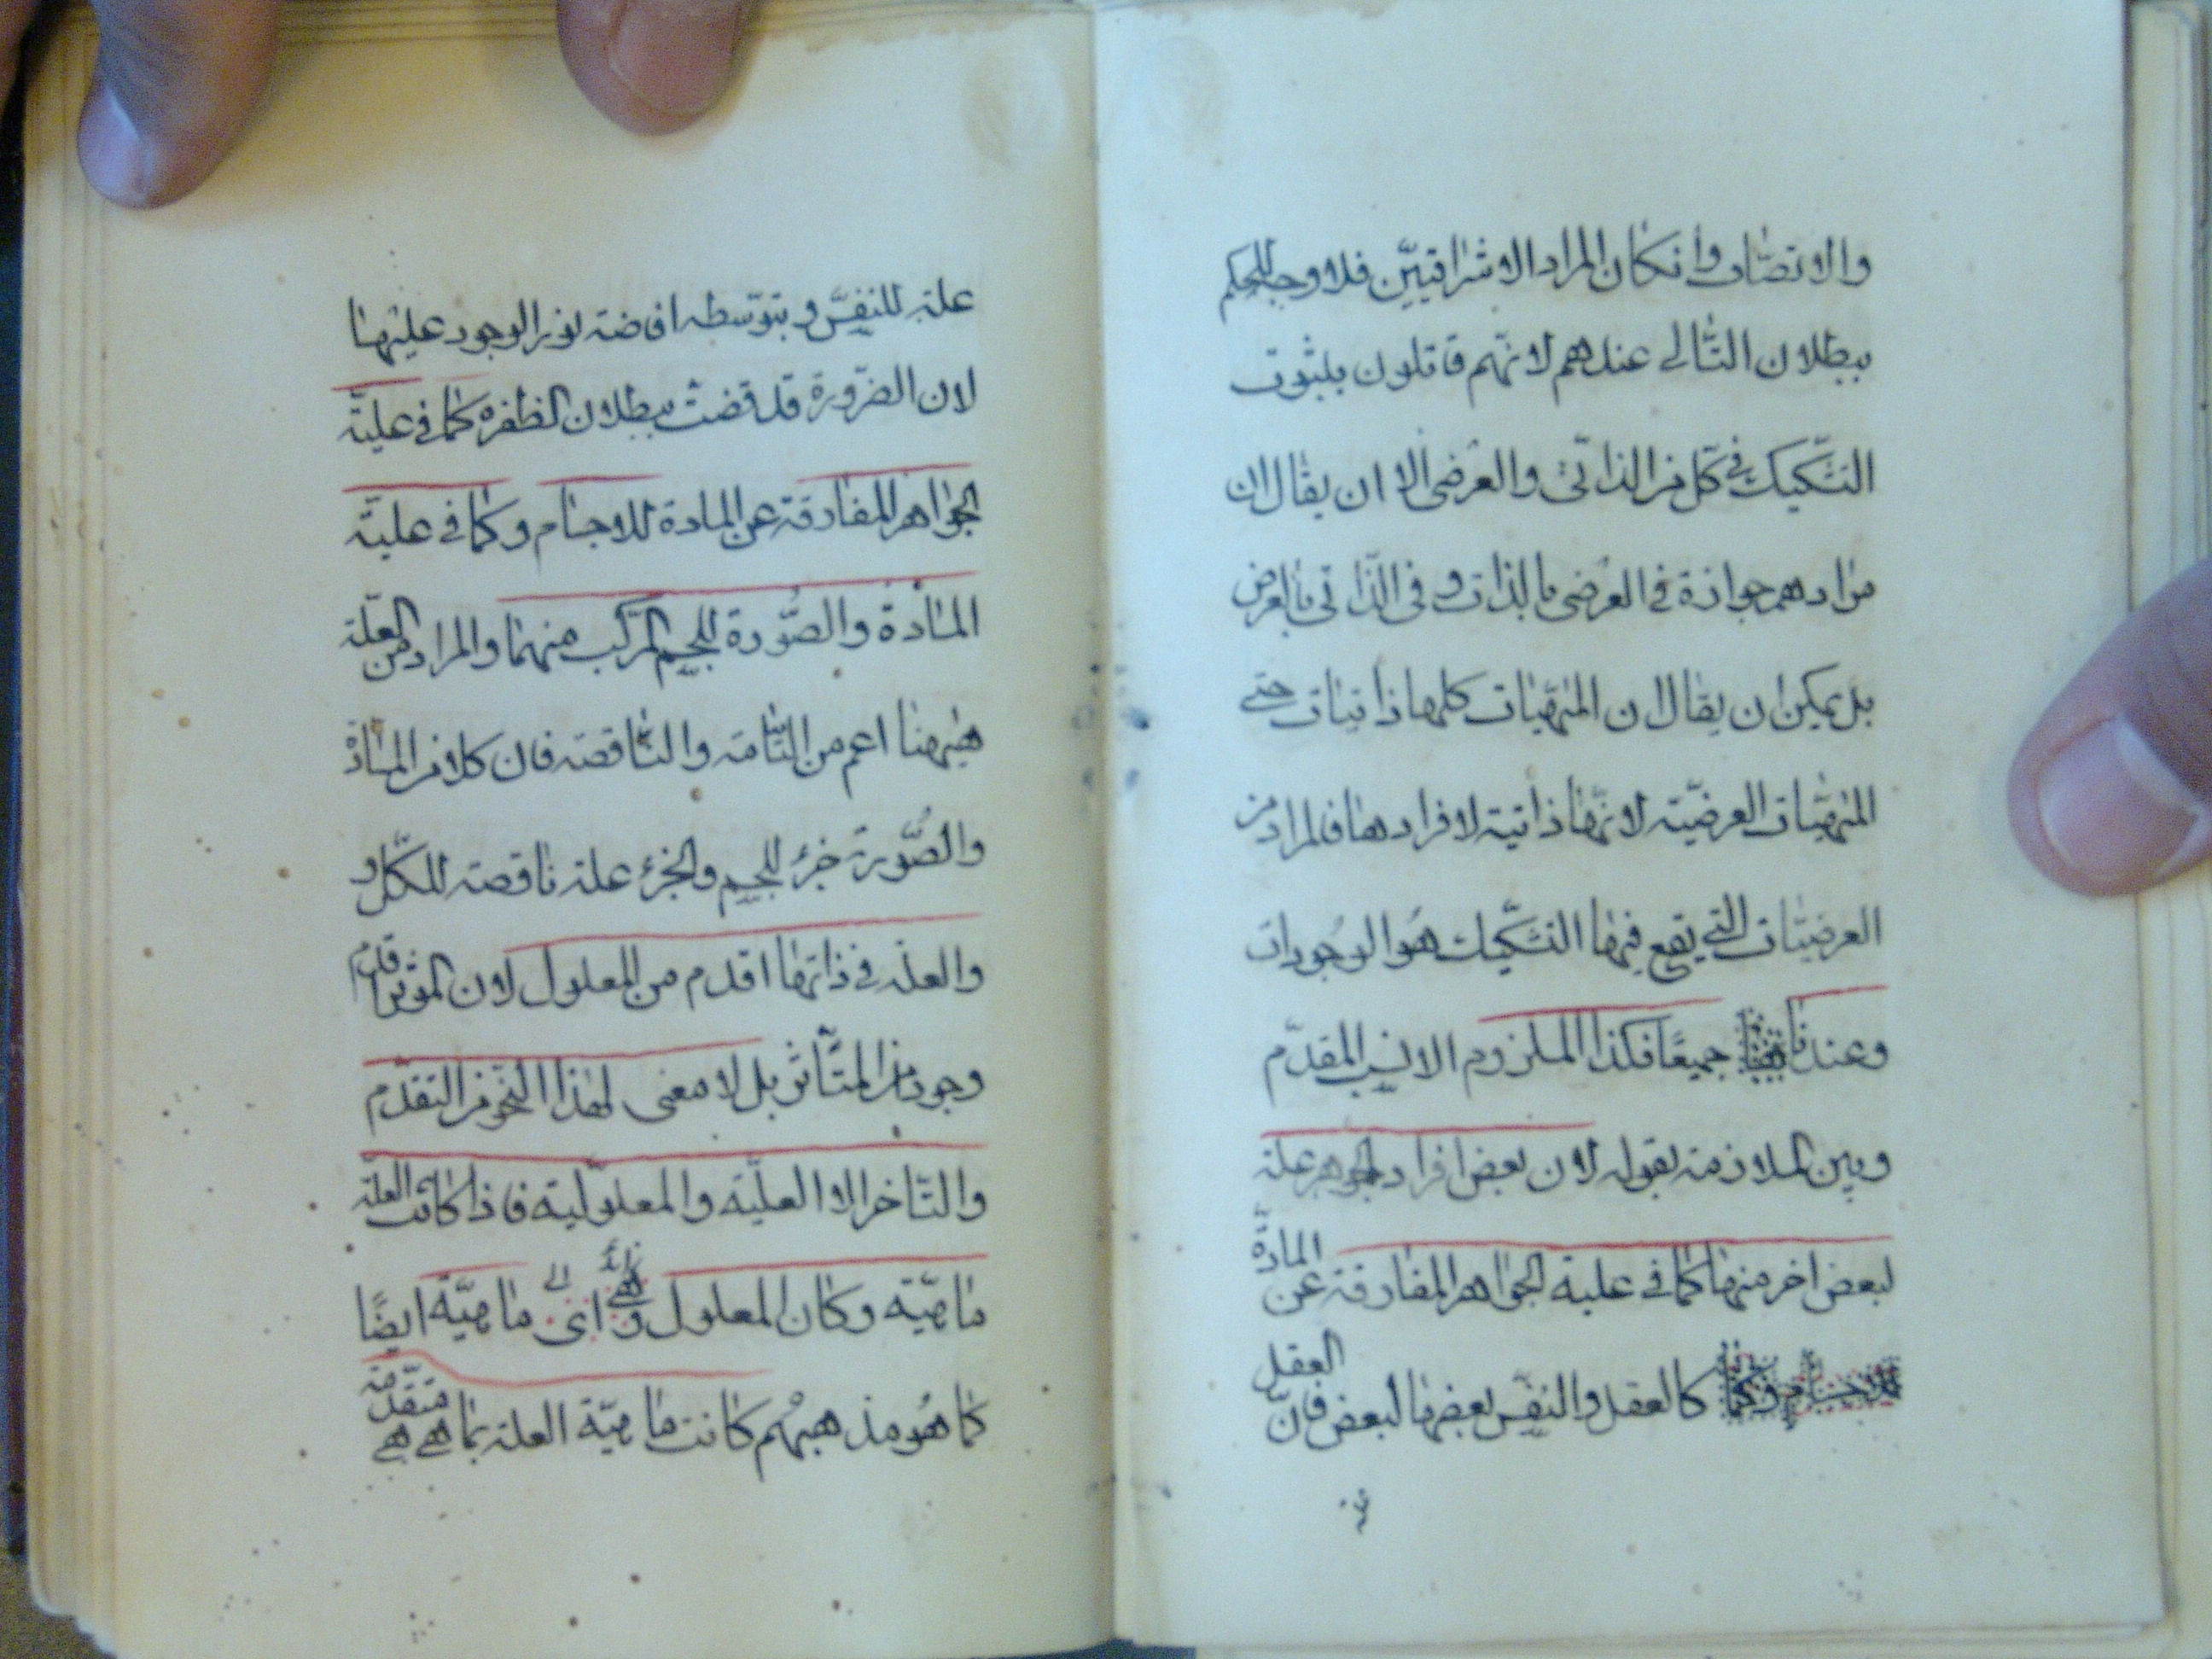 والاتصاف وانكان المراد الاشراقيين فلا وجه للحكم
ببطلان التالى عندهم لانهم قائلون بثبوت
التشكيك فى كل من الذاتى والعرضى الا ان يقال ان
مرادهم جوازه فى العرضى بالذات و فى الذاتى بالعرض
بل يمكن ان يقال ان المهيات كلها ذاتيات حتى
المهيات العرضية لانها ذاتية لافرادها فالمراد من
العرضيات التى يقع فيها التشكيك هو الوجودات
وعندنا جميعا فكذا الملزوم الانسب المقدم
وبين الملازمة بقوله لان بعض افراد الجوهر علة
لبعض اخر منها كما فى علية الجواهر المفارقة عن المادة
للاجسام وكما كالعقل والنفس بعضها لبعض فان العقل
علة للنفس و بتوسطه افاضة نور الوجود عليها
لان الضرورة قد قضت ببطلان الطفره كما فى علية
الجواهر المفارقة عن المادة للاجسام وكما فى علية
المادة والصورة للجسم المركب منهما والمراد من العلة
هيهنا اعم من التامة والناقصة فان كلا من المادة
والصورة جزء للجسم والجزء علة ناقصة للكل و
والعلة فى ذاتها اقدم من المعلول لان المؤثر اقدم
وجودا من المتأثر بل لا معنى لهذا النحو من التقدم
والتاخر الا العلية والمعلولية فاذا كانت العلة
ماهية وكان المعلول و اى ماهية ايضا
كما هو مذهبهم كانت ماهية العلة بما هى هى متقدمة